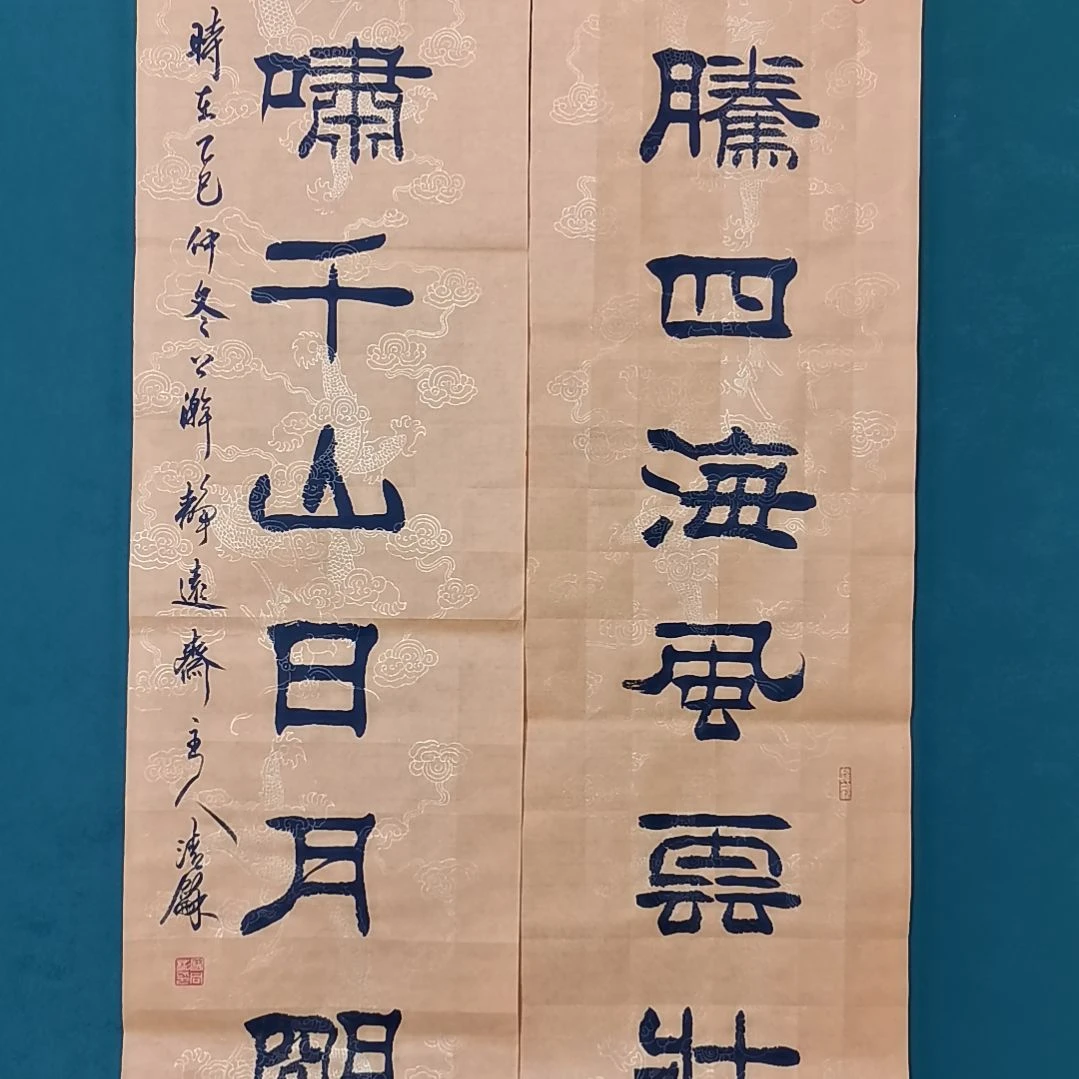 騰四海風雲壯
嘯千山日月
時在乙巳仲冬上澣靜遠齋主人清